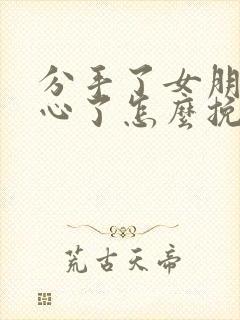 分手了女朋
心了怎麼挽
荒古天帝